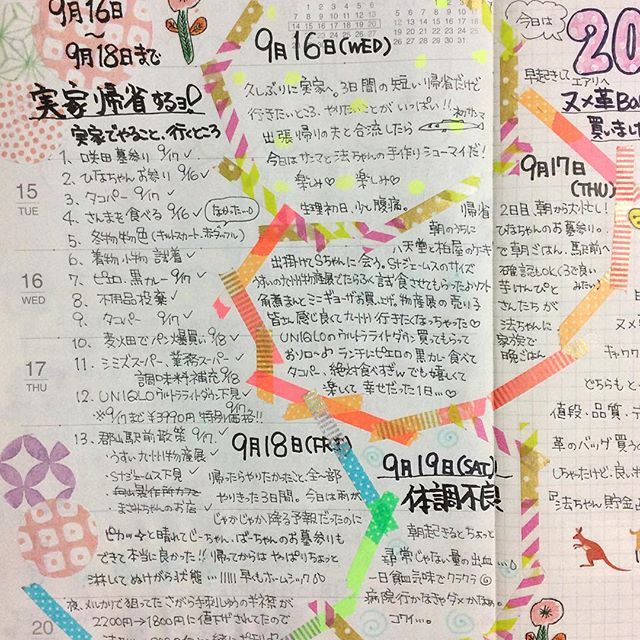 9月16日
〜
9月18日まで
実家帰省するヨ!
実家でやること、行くところ
1. 咲田墓参り 9/17 ✓
2. ひなちゃんお参り 9/16 ✓
3. タコパー 9/17 ✓
4. さんまを食べる 9/16 ✓
5. 冬物物色
6. 着物小物 試着 ✓
7. ピエロ.黒カレー 9/17 ✓
8. 不用品投棄 ✓
9. タコパー 9/17 ✓
10. 麦火田でパン爆買い 9/18 ✓
11. シミズスーパー、業務スーパー
調味料補充 9/18
12. UNIQLOウルトラライトダウン下見
※9/17まで¥3990円 特別価格!!
13. 郡山駅前散策 9/17 ✓
うすい九州物産展 ✓
Stジェームス下見
まさみちゃんのお店
15
TUE
16
WED
17
THU
20
9月16日(WED)
久しぶりに実家へ。3日間の短い帰省だけど
行きたいところ、やりたいことがいっぱい!!
出張帰りの夫と合流したら
初サンマ
今日はサンマと法ちゃんの手作りシューマイだ!
楽しみ♡ 楽しみ♡
生理初日、少し腹痛。
帰省
朝のうちに
八天堂と柏屋のケーキ
出掛けてSちゃんに会う。Stジェームスのサイズ
うすい九州物産展でたらふく試食させてもらったおソフト
角煮まんとミニギョーザお買上げ。物産展の売り子
皆さん感じ良くて九州行きたくなっちゃった♡
UNIQLOのウルトラライトダウン買ってもらって
おソロ〜♪ ランチにピエロの黒カレー食べて
タコパ。絶対食べすぎ。でも嬉しくて
楽しくて 幸せだった1日…♡
9月17日
(THU)
2日目、朝から大忙し!
ひなちゃんのお墓参り。
で朝ごはん、馬尺前へ
さんたちが
法ちゃんに
家族で
晩ごはん
9月18日(Fri)
帰ったらやりたかったこと、全部
やりきった3日間。今日は雨が
じゃかじゃか降る予報だったのに
ピカッーと晴れてじーちゃん、ばーちゃんのお墓参りも
できて本当に良かった!! 帰ってからは やっぱりちょっと
淋しくてぬけがら状態…!!!! 早くもホームシック
夜、メルカリで狙ってた さがら手刺しゅうの半襟が
2200円→1800円に値下げされてたので
9月19日(SAT)
体調不良
朝起きるとちょっと
尋常じゃない量の出血…
一日貧血気味でクラクラ
病院行かなきゃダメかなぁ。
コワイ…。
今日は
20
早起きして エアリへ
ヌメ革
買いました
どちらも
値段・品質・デ
革のバッグ買うの
しちゃたけど、良い
『法ちゃん貯金